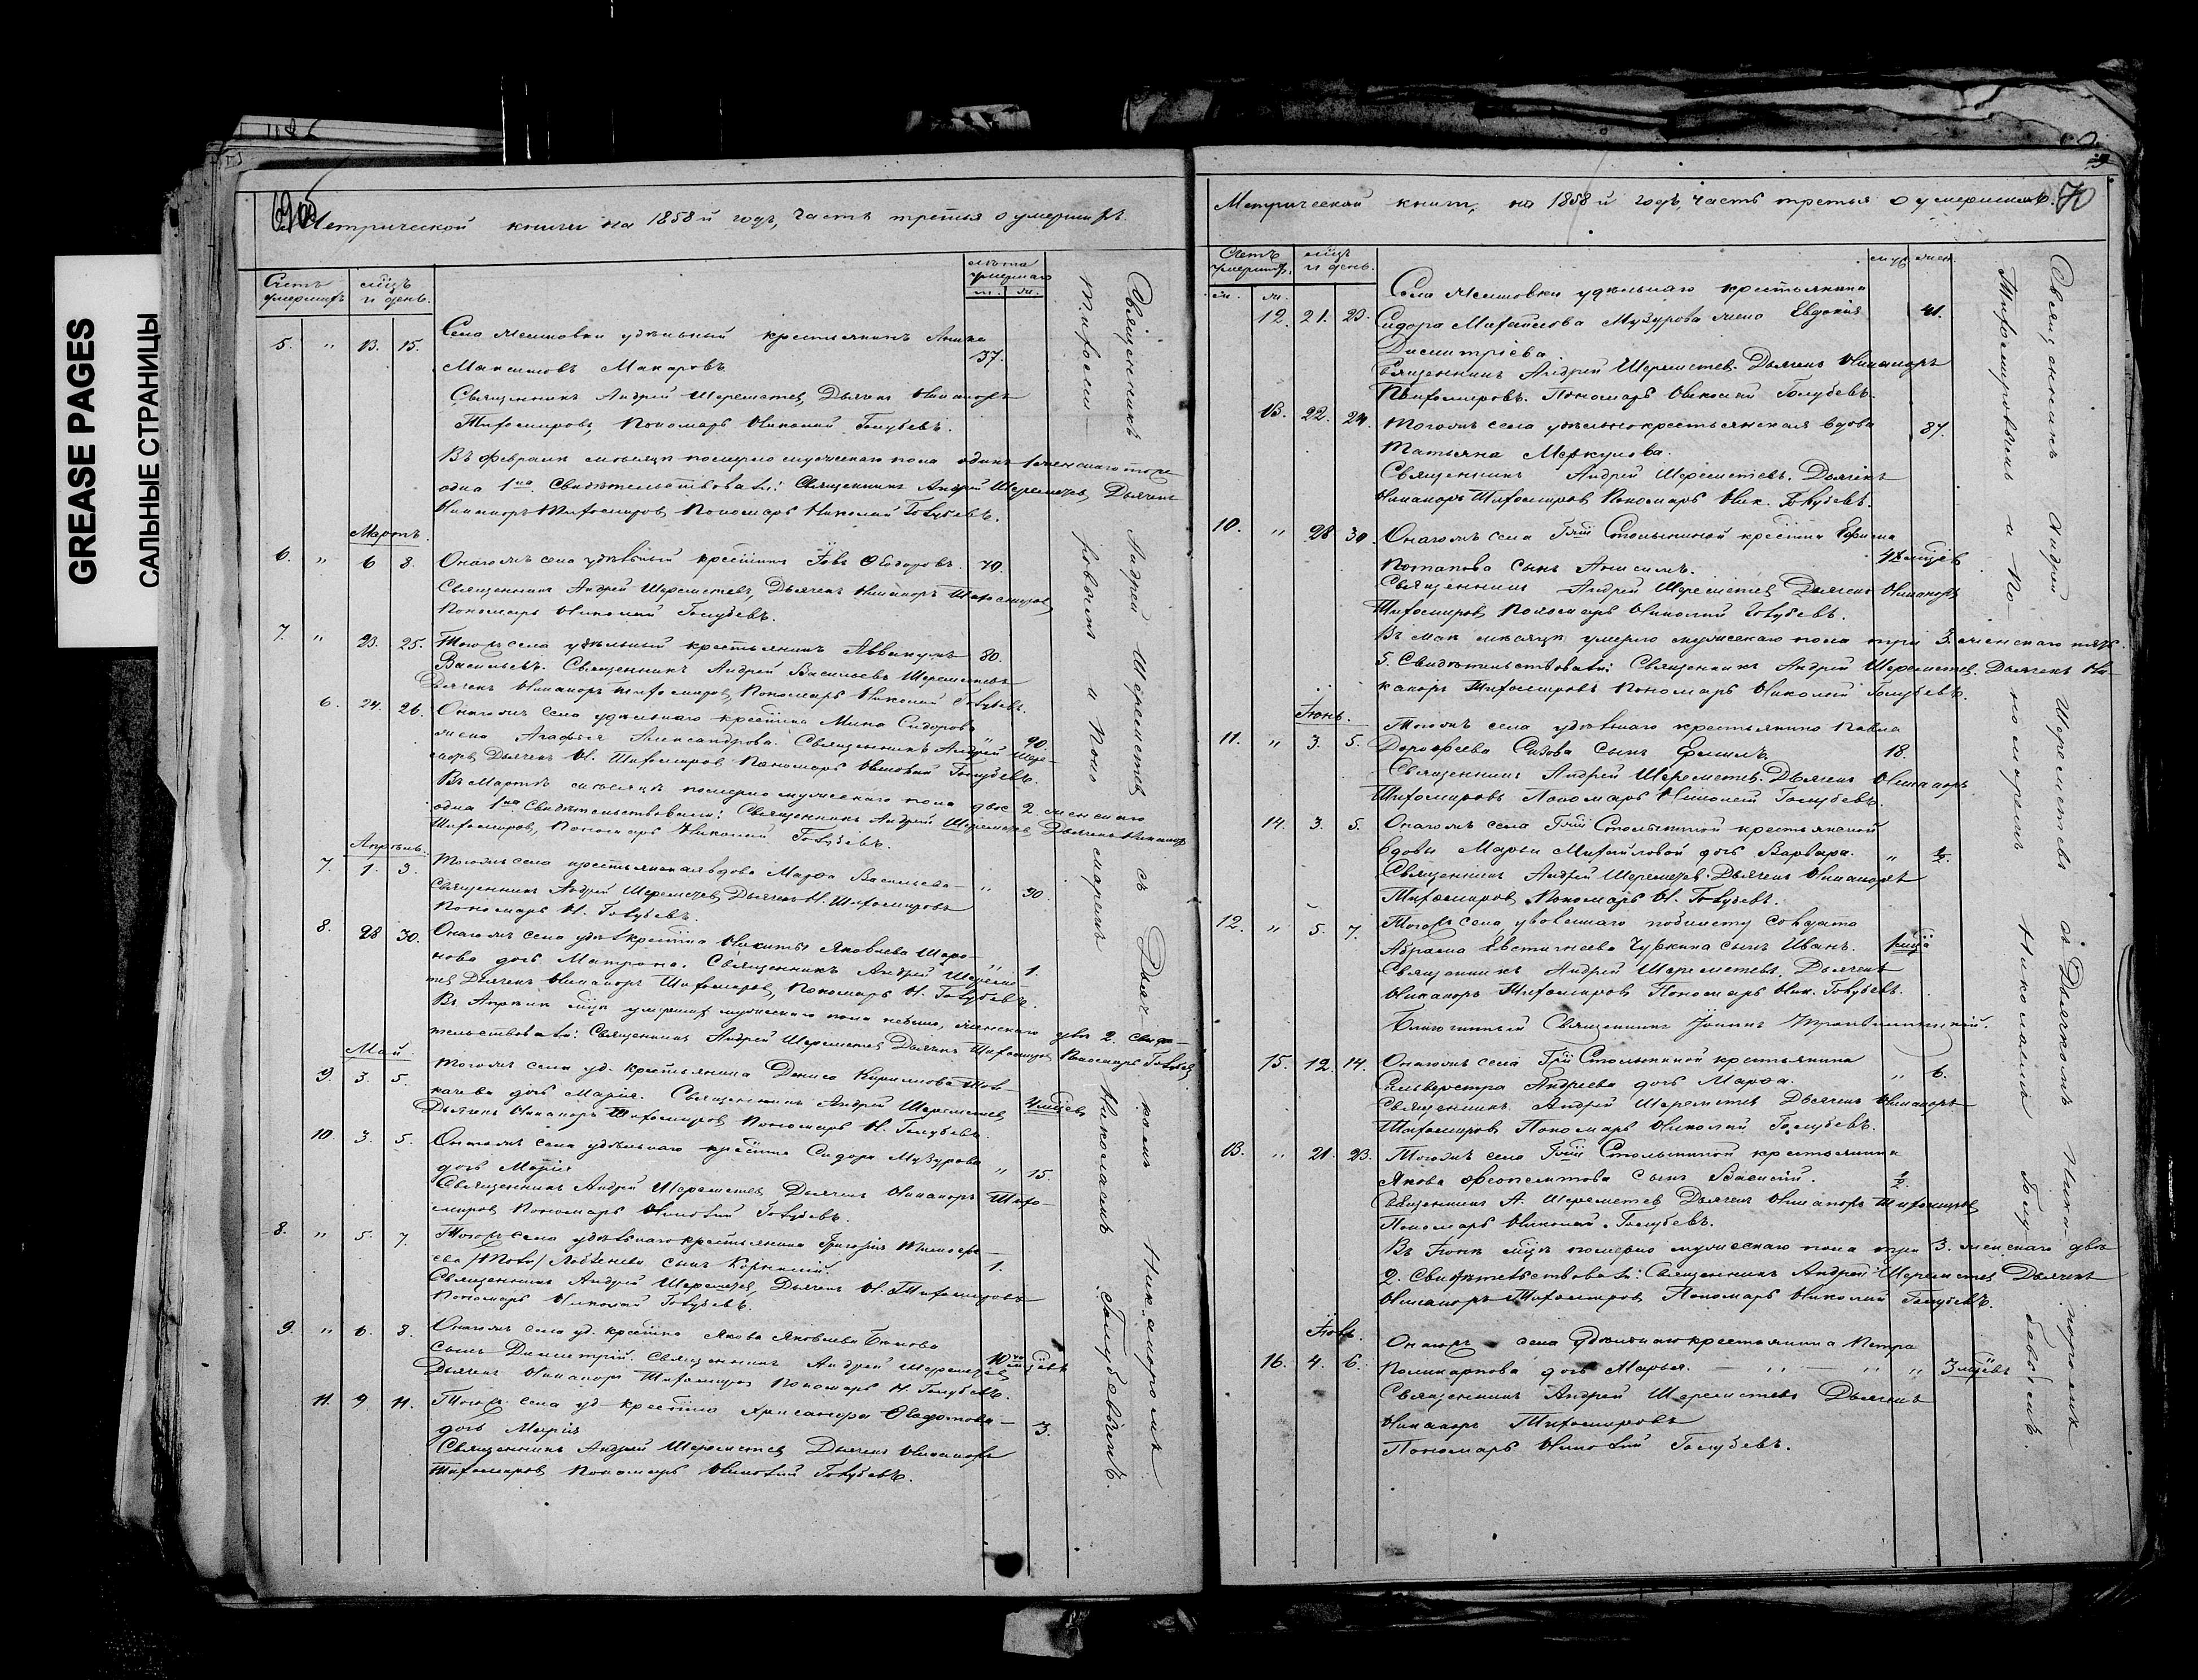 GREASE PAGES
САЛЬНЫЕ СТРАНИЦЫ
Метрической книги на 1858й годъ, часть третья о умершихъ.
Счетъ умершихъ
мѣцъ и день.
лѣта умершаго
м. ж.
5. " 13. 15. Села удѣльный крестьянинъ Аника 37.
Максимовъ Макаровъ.
Священникъ Андрей Шереметевъ, Дьячекъ Никаноръ
Тихомировъ, Пономарь Николай Голубевъ.
Въ Февралѣ мѣсяцѣ померло мужескаго пола одинъ 1 женскаго тоже
одна 1на. Свидѣтельствовали: Священникъ Андрей Шереметевъ, Дьячекъ
Никаноръ Тихомировъ Пономарь Николай Голубевъ.
Мартъ.
6. " 6 8. Онагожъ села удѣльный Іовъ Ѳеодоровъ. 70.
Священникъ Андрей Шереметевъ, Дьячекъ Никаноръ Тихомировъ
Пономарь Николай Голубевъ.
7. " 23. 25. Тогожъ села удѣльный крестьянинъ Аввакумъ 80.
Васильевъ. Священникъ Андрей Васильевъ Шереметевъ
Дьячекъ Никаноръ Тихомировъ, Пономарь Николай Голубевъ.
6. 24. 26. Онагожъ села удѣльнаго Сидорова " 90.
жена Агафья Александрова. Священникъ Андрей Шере-
Дьячекъ Н. Тихомировъ Пономарь Николай Голубевъ.
Въ Мартѣ мѣсяцѣ померло мужескаго пола двое 2. женскаго
одна 1на Свидѣтельствовали: Священникъ Андрей Шереметевъ, Дьячекъ Никаноръ
Тихомировъ, Пономарь Николай Голубевъ.
Апрѣль.
7. 1. 3. Тогожъ села крестьянская вдова Марѳа Васильева " 90.
Священникъ Андрей Шереметевъ Дьячекъ Н. Тихомировъ
Пономарь Н. Голубевъ.
8. 28 30. Онагожъ села Никиты Яковлева Шаро-
нова дочь Матрона. Священникъ Андрей Шереме- " 1.
тевъ Дьячекъ Никаноръ Тихомировъ, Пономарь Н. Голубевъ.
Въ Апрѣлѣ мѣцѣ мужескаго пола женскаго двѣ 2. свидѣ-
тельствовали: Священникъ Андрей Шереметевъ Дьячекъ Тихомировъ Пономарь Голубевъ
Май
9. 3. 5. Тогожъ села уд. крестьянина Дениса Кирилова
дочь Марія. Священникъ Андрей Шереметевъ
Дьячекъ Никаноръ Тихомировъ Пономарь Н. Голубевъ.
10. 3. 5. Онагожъ села удѣльнаго Сидора Музурова " 15.
дочь Марія
Священникъ Андрей Шереметевъ Дьячекъ Никаноръ Тихо-
мировъ Пономарь Николай Голубевъ.
8. " 5. 7. Тогожъ села удѣльнаго крестьянина Григорія
сынъ Корнилій. 1.
Священникъ Андрей Шереметевъ, Дьячекъ Н. Тихомировъ
Пономарь Николай Голубевъ.
9. " 6. 8. Онагожъ села уд. Якова Яковлева
сынъ Димитрій. Священникъ Андрей Шереметевъ
Дьячекъ Никаноръ Тихомировъ Пономарь Н. Голубевъ.
11. 9. 11. Тогожъ села уд.
дочь Марія 3.
Священникъ Андрей Шереметевъ Дьячекъ Никаноръ
Тихомировъ Пономарь Николай Голубевъ.
Священникъ Андрей Шереметевъ съ Дьячкомъ Никаноромъ
Тихомировымъ и Пономаремъ Николаемъ Голубевымъ.
Метрической книги, на 1858й годъ, часть третья о умершихъ. 70
Счетъ умершихъ.
мѣцъ и день.
муж. жен.
м. ж.
Села удѣльнаго крестьянина
12. 21. 23. Сидора Михайлова Музурова жена Евдокия 41.
Димитріева
Священникъ Андрей Шереметевъ. Дьячекъ Никаноръ
Тихомировъ. Пономарь Николай Голубевъ.
13. 22. 24. Тогожъ села удѣльнокрестьянская вдова 87.
Татьяна Меркулова.
Священникъ Андрей Шереметевъ. Дьячекъ
Никаноръ Тихомировъ Пономарь Ник. Голубевъ.
10. " 28 30. Онагожъ села Гжи Столыпиной Ефима
Потапова сынъ Анисимъ.
Священникъ Андрей Шереметевъ Дьячекъ Никаноръ
Тихомировъ, Пономарь Николай Голубевъ.
Въ Маѣ мѣсяцѣ умерло мужескаго пола три 3. женскаго пять
5. Свидѣтельствовали: Священникъ Андрей Шереметевъ, Дьячекъ Ни-
каноръ Тихомировъ Пономарь Николай Голубевъ.
Іюнь.
Тогожъ села удѣльнаго крестьянина Павла
11. " 3. 5. Дороѳеева Сизова сынъ 18.
Священникъ Андрей Шереметевъ. Дьячекъ Никаноръ
Тихомировъ Пономарь Николай Голубевъ.
14. 3. 5. Онагожъ села Гжи Столыпиной крестьянской
вдовы Марьи Михайловой дочь Варвара. " ½.
Священникъ Андрей Шереметевъ. Дьячекъ Никаноръ
Тихомировъ Пономарь Н. Голубевъ.
12. " 5. 7. Тогожъ села уволеннаго по билету солдата
Абрама Евстигнеева Чуркина сынъ Иванъ.
Священникъ Андрей Шереметевъ. Дьячекъ
Никаноръ Тихомировъ Пономарь Ник. Голубевъ.
Благочинный Священникъ
15. 12. 14. Онагожъ села Гжи Столыпиной крестьянина
Сильверстра Андреева дочь Марѳа. " 6.
Священникъ Андрей Шереметевъ Дьячекъ Никаноръ
Тихомировъ Пономарь Николай Голубевъ.
13. " 21. 23. Тогожъ села Гжи Столыпиной крестьянина
Якова Ѳеопемптова сынъ Василій. ½.
Священникъ А. Шереметевъ Дьячекъ Никаноръ Тихомировъ
Пономарь Николай Голубевъ.
Въ Іюнѣ мѣцѣ померло мужескаго пола три 3. женскаго двѣ
2. Свидѣтельствовали: Священникъ Андрей Шереметевъ Дьячекъ
Никаноръ Тихомировъ Пономарь Николай Голубевъ.
Іюль.
Онагожъ села удѣльнаго крестьянина Петра
16. 4. 6. Поликарпова дочь Марья. " 3 мцевъ
Священникъ Андрей Шереметевъ Дьячекъ
Никаноръ Тихомировъ
Пономарь Николай Голубевъ.
Священникъ Андрей Шереметевъ съ Дьячкомъ Никаноромъ
Тихомировымъ и Пономаремъ Николаемъ Голубевымъ.